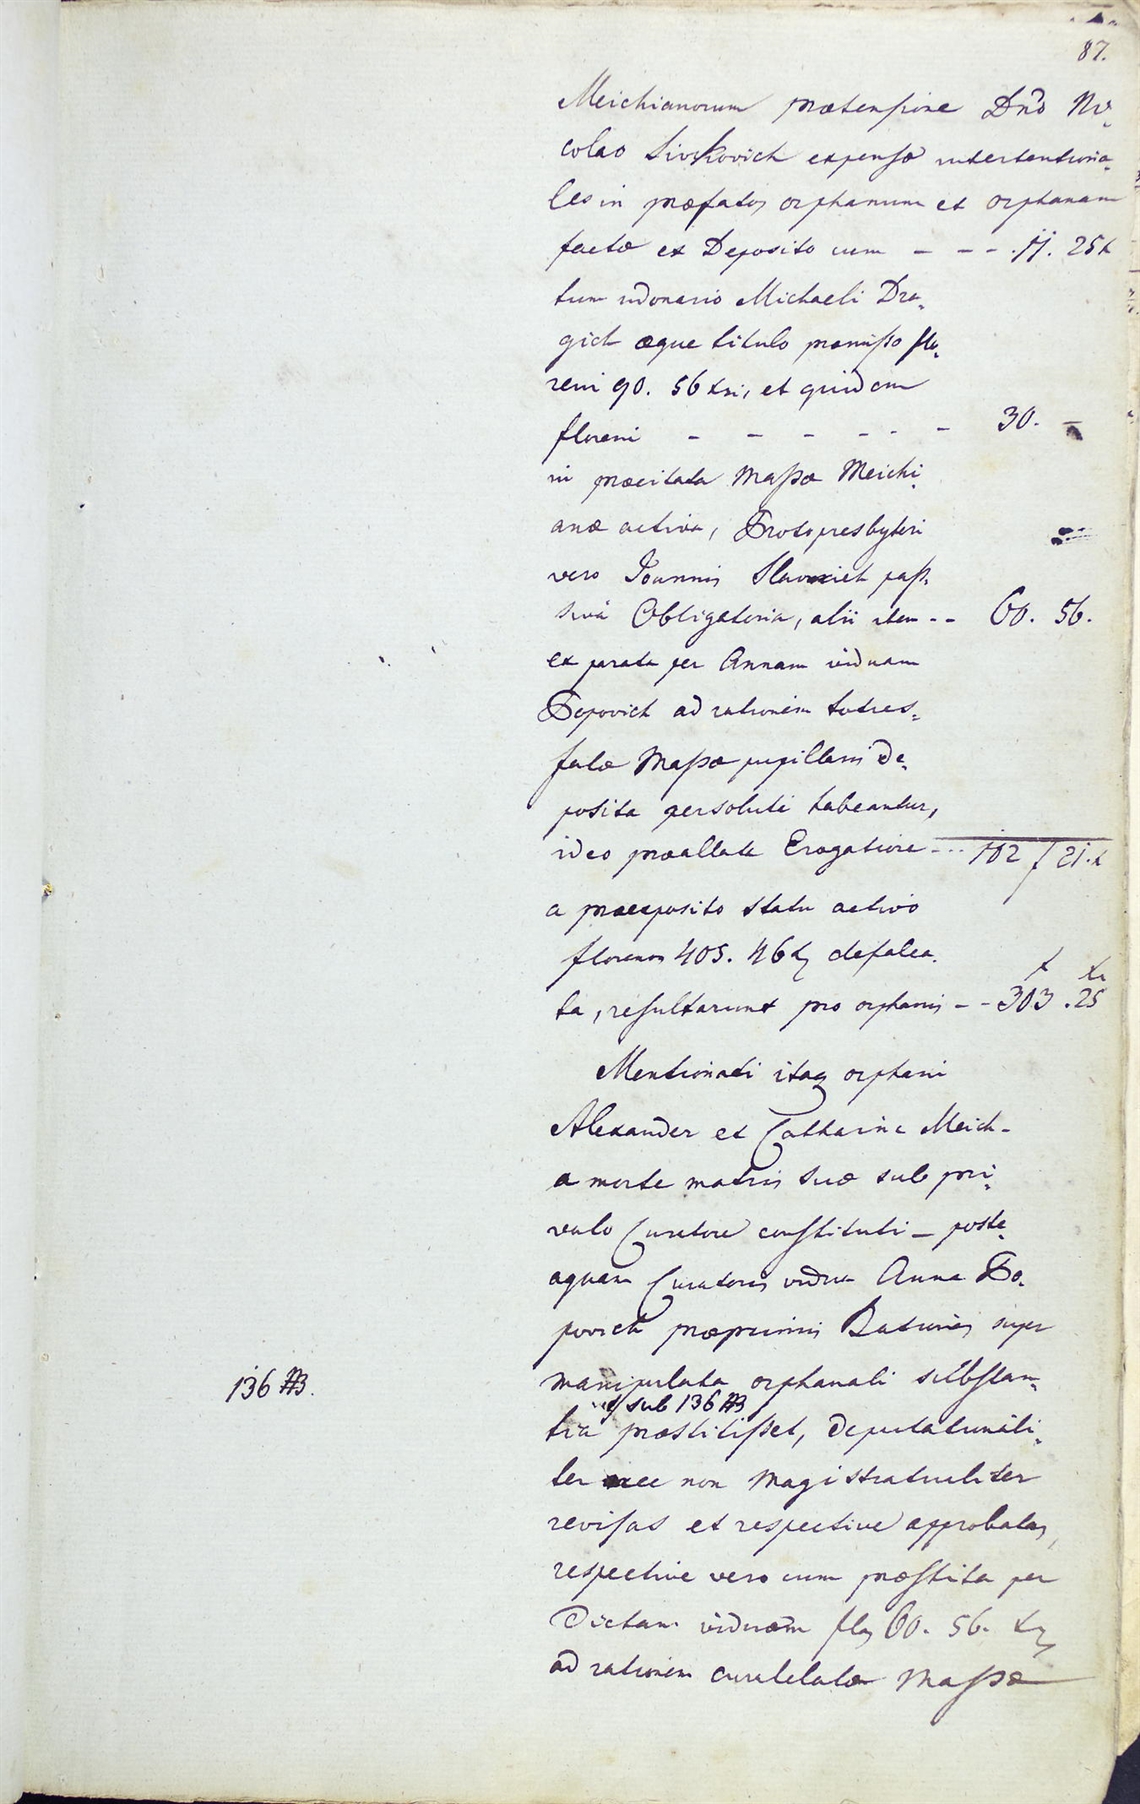 87.
Meichianorum prætensione Dno Ni-
colao Sivkovich expensæ intertentiona-
les in præfatos orphanum et orphanam
factæ ex Deposito cum - - - 11. 25x
tum idonario Michaeli Dra-
gich æque titulo præmisso flo-
reni 90. 56 xri, et quidem
floreni - - - - - - 30. -
in præcitata Massæ Meichi-
anæ activa, Protopresbyteri
vero Joannis Slavxich pas-
siva Obligatoria, alii item - - 60. 56.
ex parata per Annam viduam
Popovich ad rationem toties-
fatæ Massæ pupillaris de-
posita persoluti habeantur,
ideo præallate Erogatione - - - 102 f 21.x
a præexposito statu activo
florenos 405. 46 x defalca-
f xr
ta, resultarunt pro orphanis - - 303. 25
Mentionati itaq orphani
Alexander et Catharina Meich-
a morte matris suæ sub pri-
vato Curatore constituti - poste-
aquam Curatores vidua Anna Po-
povich præprimis Rationes super
136 B.
manipulata orphanali substan-
sub 136 B
tia præstitisset, deputationali-
ter nec non Magistratualiter
revisas et respective approbatas,
respective vero cum præstita per
Dictam viduam fl 60. 56. xr
ad rationem curatelatæ Massæ